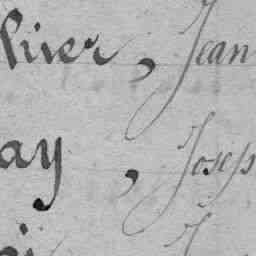 liver, Jean
ay, Josep